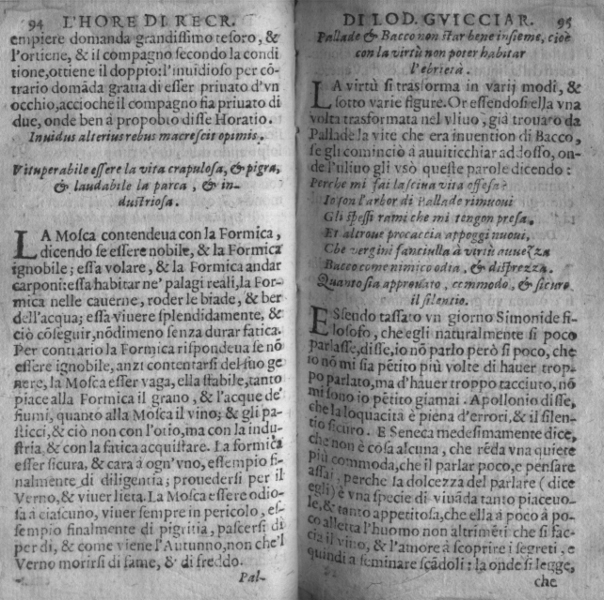 94 L'HORE DI RECR.
empiere domanda grandissimo tesoro, &
l'ortiene, & il compagno secondo la condi
tione, ottiene il doppio: l'inuidioso per cō-
trario domāda gratia di esser priuato d'vn
occhio, accioche il compagno sia priuato di
due, onde ben à propobio disse Horatio.
Inuidus alterius rebus macrescit opimis.
Vituperabile essere la vita crapulosa, & pigra,
& laudabile la parca, & in-
dustriosa.
LA Mosca contendeua con la Formica,
dicendo se essere nobile, & la Formica
ignobile; essa volare, & la Formica andar
carponi: essa habitar ne' palagi reali, la For-
mica nelle cauerne, roder le biade, & ber
dell'acqua; essa viuere splendidamente, &
ciò cōseguir, nōdimeno senza durar fatica.
Per contrario la Formica rispondeua se nō
essere ignobile, anzi contentarsi del suo ge
nere, la Mosca esser vaga, ella stabile, tanto
piace alla Formica il grano, & l'acque de'
fiumi, quanto alla Mosca il vino; & gli pa-
sticci, & ciò non con l'otio, ma con la indu-
stria, & con la fatica acquistare. La formica
esser sicura, & cara à ogn'vno, essempio fi-
nalmente di diligentia; prouedersi per il
Verno, & viuer lieta. La Mosca essere odio-
sa à ciascuno, viuer sempre in pericolo, es-
sempio finalmente di pigritia, pascersi di
per dì, & come viene l'Autunno, non che'l
Verno morirsi di fame, & di freddo.
Pal-
DI LOD. GVICCIAR. 95
Pallade & Bacco non star bene insieme, cioè
con la virtù non poter habitar
l'ebrietà.
LA virtù si trasforma in varij modi, &
sotto varie figure. Or essendosi ella vna
volta trasformata nel vliuo, già trouaro da
Pallade la vite che era inuention di Bacco,
se gli cominciò à auuiticchiar addosso, on-
de l'uliuo gli vsò queste parole dicendo:
Perche mi fai lasciua vita offesa?
Io son l'arbor di Pallade rimuoui
Gli spessi rami che mi tengon presa,
Et altroue procaccia appoggi nuoui,
Che vergini fanciulla à virtù auuezza
Bacco come nimico odia, & disprezza.
Quanto sia approuato, commodo, & sicuro
il silentio.
ESsendo tassato vn giorno Simonide fi-
losofo, che egli naturalmente si poco
parlasse, disse, io nō parlo però sì poco, che
io nō mi sia pētito più volte di hauer trop-
po parlato, ma d'hauer troppo tacciuto, nō
mi sono io pētito giamai. Apollonio disse,
che la loquacità è piena d'errori, & il silen-
tio sicuro. E Seneca medesimamente dice,
che non è cosa alcuna, che rēda vna quiete
più commoda, che il parlar poco, e pensare
assai, perche la dolcezza del parlare (dice
egli) è vna specie di viuāda tanto piaceuo-
le, & tanto appetitosa, che ella à poco à po-
co alletta l'huomo non altrimēti che si fac-
cia il vino, & l'amore à scoprire i segreti, e
quindi à seminare scādoli: la onde si legge,
che